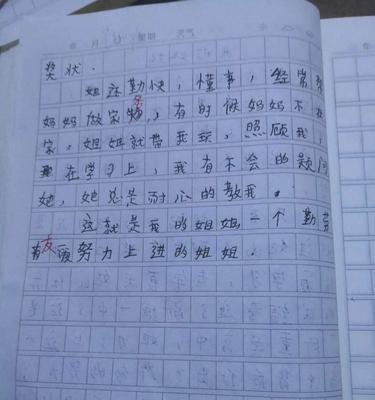 年 月 日 星期 天气
奖状.
姐还勤快，懂事，经常帮
妈妈做家务，有的时候妈妈不在
家，姐姐就带我玩，照顾我，
在学习上，我有不会的题问
她，她总是耐心的教我。
这就是我的姐姐，一个勤劳
有友爱努力上进的姐姐.